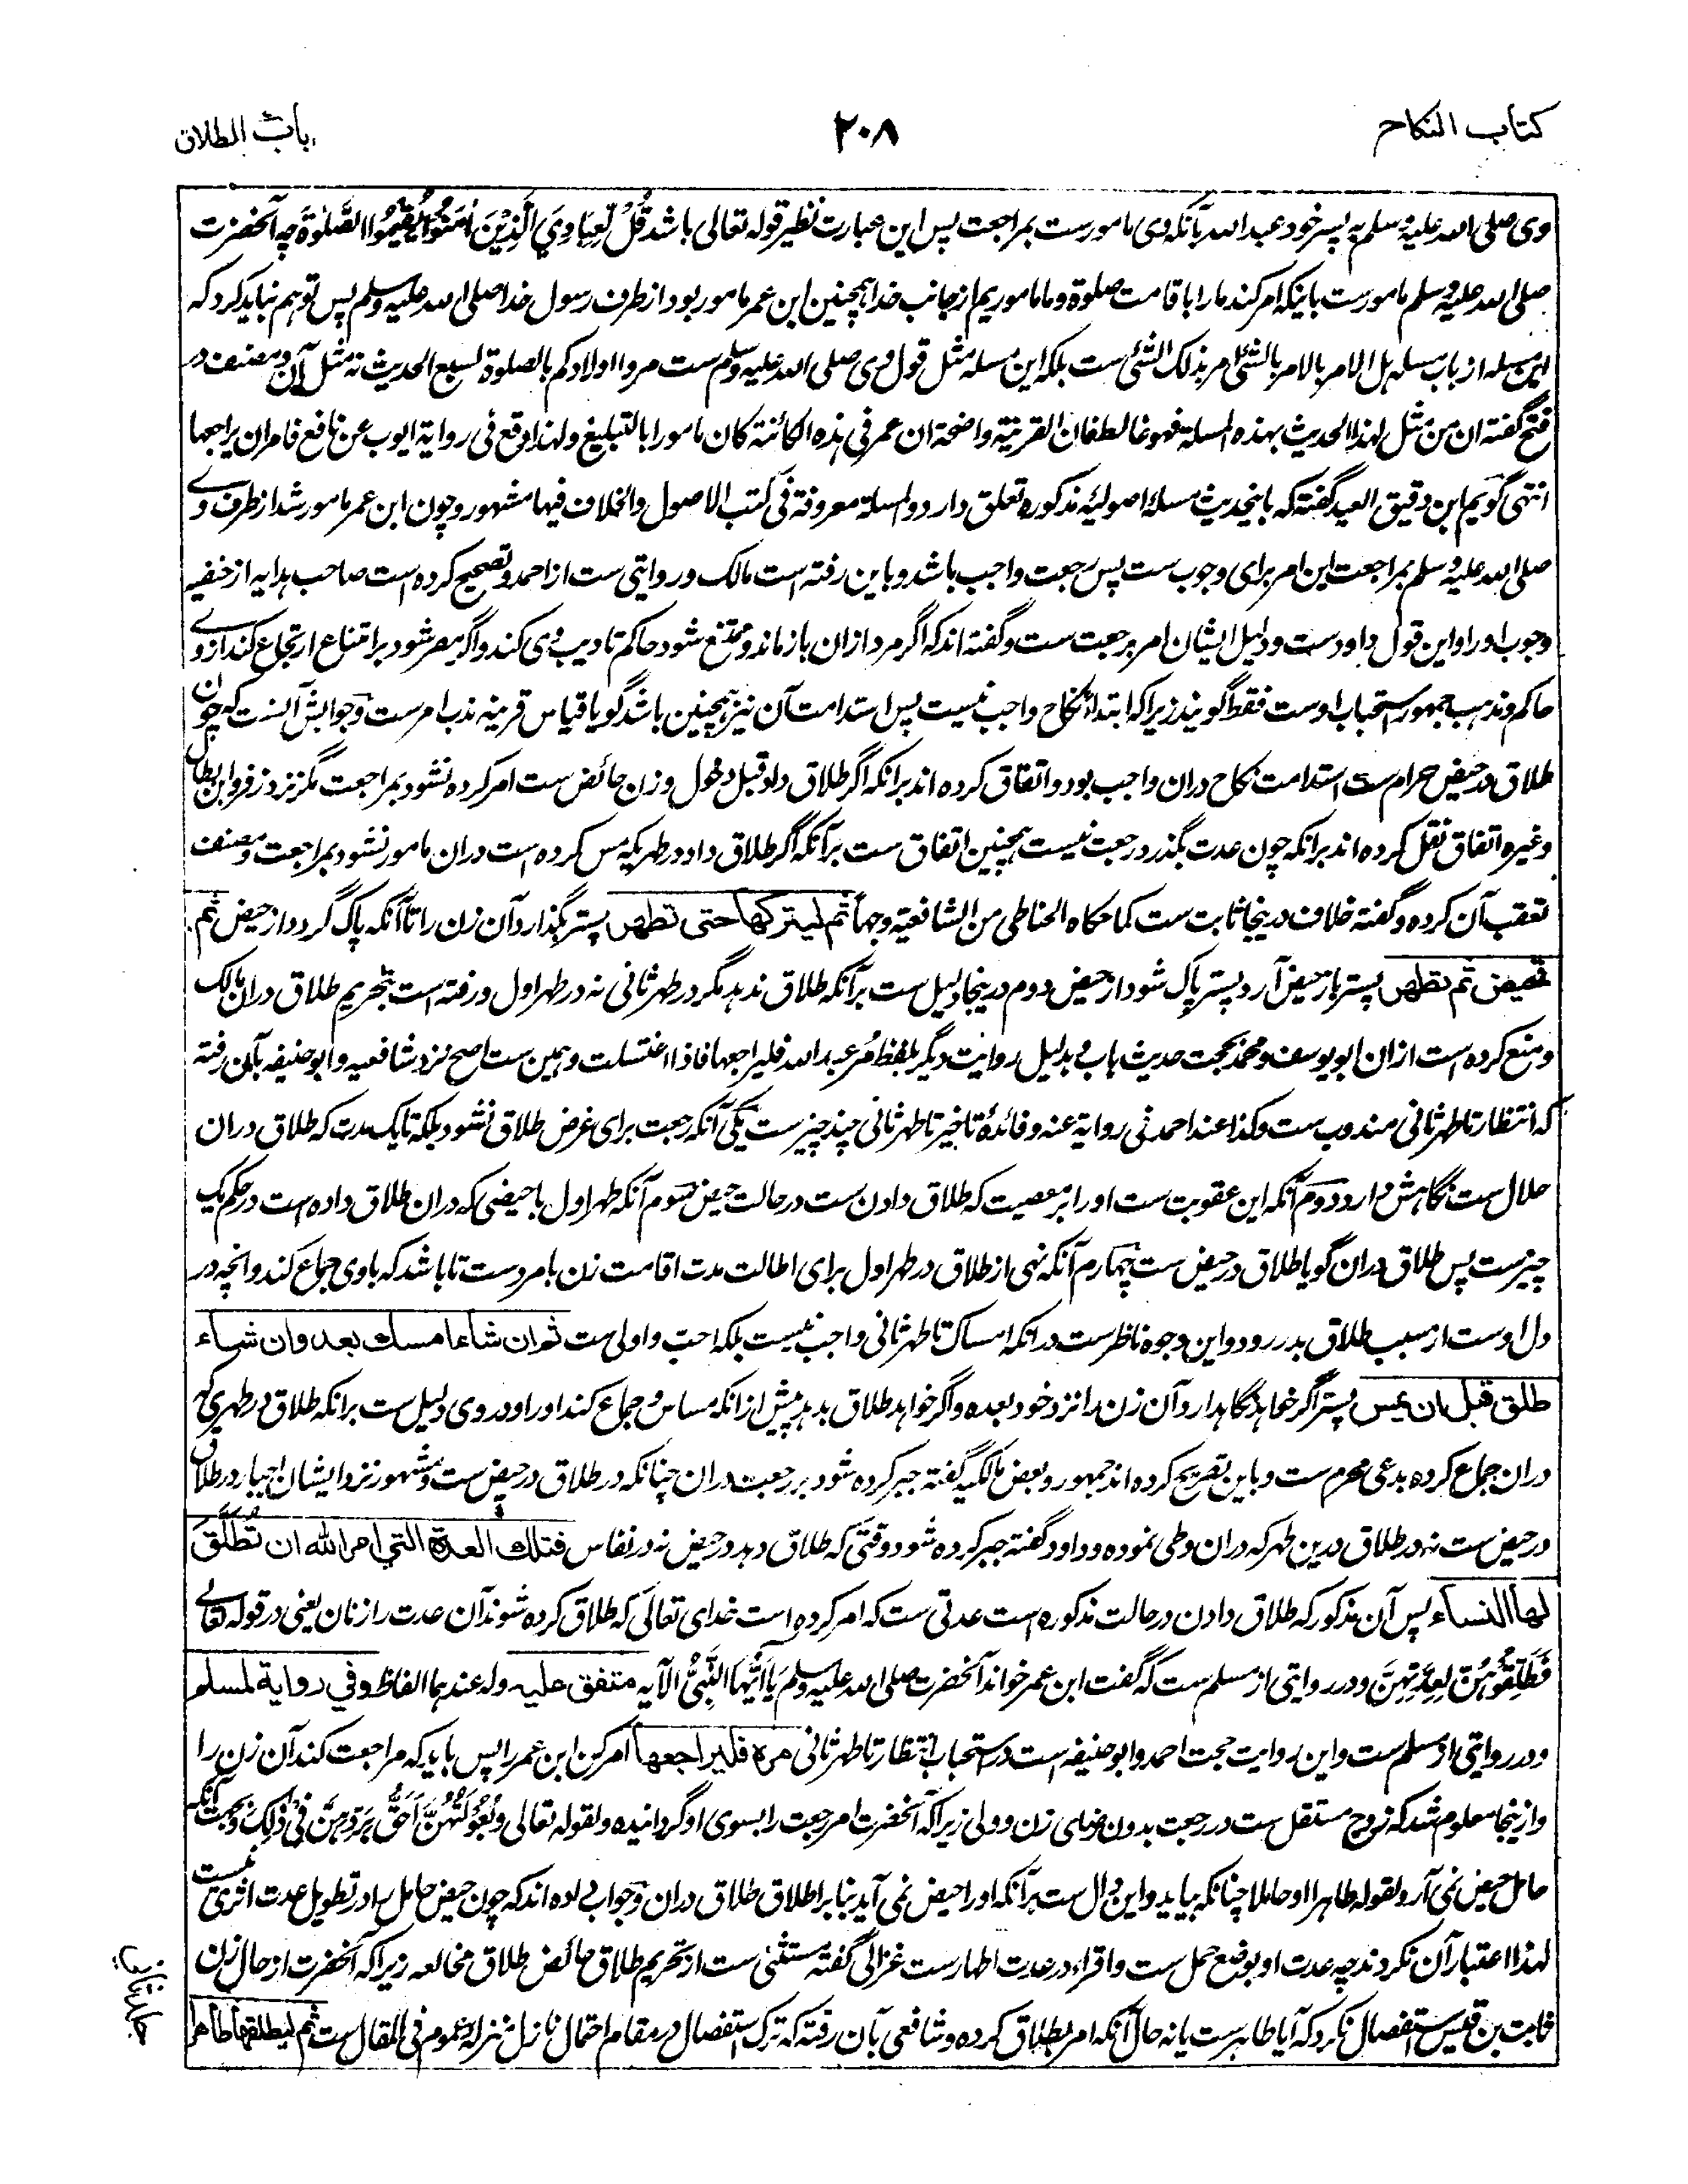 كتاب النكاح
٢٠٨
باب الطلاق
وی صلی الله علیه وسلم به پسر خود عبد الله بآنکه وی مامورست بمراجعت پس این عبارت نظیر قوله تعالی باشد قُلْ لِّعِبَادِيَ الَّذِيْنَ اٰمَنُوْا يُقِيْمُوا الصَّلٰوةَ چه آنحضرت
صلی الله علیه وسلم مامورست باینکه امر کند ما را باقامت صلوة و ما ماموریم از جانب خدا همچنین ابن عمر مامور بود از طرف رسول خدا صلی الله علیه وسلم پس توهم نباید کرد که
این مسله از باب مسله هل الامر بالامر بالشئی امر بذلک الشئی ست بلکه این مسله مثل قول وی صلی الله علیه وسلم ست مروا اولادکم بالصلوة لسبع الحدیث نه مثل آن و مصنف در
فتح گفته ان من مثل لهذا الحدیث بهذه المسلة فهو غالط فان القرینة واضحة ان عمر فی هذه الکائنة کان مامورا بالتبلیغ ولهذا وقع فی روایة ایوب عن نافع فامر ان یراجعها
انتهی گویم ابن دقیق العید گفته که باینحدیث مسلهٔ اصولیهٔ مذکوره تعلق دارد والمسلة معروفة فی کتب الاصول والخلاف فیها مشهور و چون ابن عمر مامور شد از طرف وے
صلی الله علیه وسلم بمراجعت این امر برای وجوب ست پس رجعت واجب باشد و باین رفته است مالک و روایتی ست از احمد و تصحیح کرده است صاحب هدایه از حنفیه
وجوب او را و این قول داودست و دلیل ایشان امر برجعت ست و گفته اند که اگر مرد ازان باز ماند و ممتنع شود حاکم تادیب وی کند و اگر مصر شود بر امتناع ارتجاع کند از وے
حاکم و مذهب جمهور استحباب اوست فقط گویند زیرا که ابتداء نکاح واجب نیست پس استدامت آن نیز همچنین باشد گویا قیاس قرینه ندب امرست و جوابش آنست که چون
طلاق در حیض حرام ست استدامت نکاح دران واجب بود و اتفاق کرده اند برانکه اگر طلاق داد قبل دخول و زن حائض ست امر کرده نشود بمراجعت مگر نزد زفر و ابن بطال
و غیره اتفاق نقل کرده اند برانکه چون عدت بگذرد رجعت نیست همچنین اتفاق ست برآنکه اگر طلاق داد در طهریکه مس کرده است دران مامور نشود بمراجعت و مصنف
تعقب آن کرده و گفته خلاف درینجا ثابت ست کما حکاه الحناطی من الشافعیة وجها ثم ليتركها حتى تطهر پستر بگذارد آن زن را تا آنکه پاک گردد از حیض ثم
تحيض ثم تطهر پستر باز حیض آرد پستر پاک شود از حیض دوم درینجا دلیل ست برآنکه طلاق ندهد مگر در طهر ثانی نه در طهر اول و رفته است بتحریم طلاق دران مالک
و منع کرده است ازان ابو یوسف و محمد بحجت حدیث باب و بدلیل روایت دیگر بلفظ مُر عبد الله فلیراجعها فاذا اغتسلت و همین ست اصح نزد شافعیه و ابو حنیفه بآن رفته
که انتظار تا طهر ثانی مندوب ست وکذا عند احمد فی روایة عنه و فائدهٔ تاخیر تا طهر ثانی چند چیزست یکی آنکه رجعت برای غرض طلاق نشود بلکه تا یک مدت که طلاق دران
حلال ست نگاهش دارد دوم آنکه این عقوبت ست او را بر معصیت که طلاق دادن ست در حالت حیض سوم آنکه طهر اول با حیضی که دران طلاق داده است در حکم یک
چیزست پس طلاق دران گویا طلاق در حیض ست چهارم آنکه نهی از طلاق در طهر اول برای اطالت مدت اقامت زن با مردست تا باشد که باوی جماع کند و انچه در
دل اوست از سبب طلاق بدر رود و این وجوه ناظرست درانکه امساک تا طهر ثانی واجب نیست بلکه احب و اولی ست ثم ان شاء امسك بعد وان شاء
طلق قبل ان يمس پستر اگر خواهد نگاهدارد آن زن را نزد خود بعده و اگر خواهد طلاق بدهد پیش از انکه مساس و جماع کند او را و در وی دلیل ست برانکه طلاق در طهری که
دران جماع کرده بدعی محرم ست و باین تصریح کرده اند جمهور و بعض مالکیه گفته جبر کرده شود بر رجعت دران چنانکه در طلاق در حیض ست و مشهور نزد ایشان اجبار در طلاق
در حیض ست نه در طلاق درین طهر که دران وطی نموده و داود گفته جبر کرده شود وقتی که طلاق دهد در حیض نه در نفاس فتلك العدة التي امر الله ان تُطَلَّقَ
لها النساء پس آن مذکور که طلاق دادن در حالت مذکوره است عدتی ست که امر کرده است خدای تعالی که طلاق کرده شوند آن عدت را زنان یعنی در قوله تعالے
فَطَلِّقُوْهُنَّ لِعِدَّتِهِنَّ و در روایتی از مسلم ست که گفت ابن عمر خواند آنحضرت صلی الله علیه وسلم يَا اَيُّهَا النَّبِيُّ الآیه متفق عليه وله عندهما الفاظ وفي رواية لمسلم
و در روایتی از مسلم ست و این روایت حجت احمد و ابو حنیفه است در استحباب انتظار تا طهر ثانی مره فليراجعها امر کن ابن عمر را پس باید که مراجعت کند آن زن را
و از ینجا معلوم شد که زوج مستقل ست در رجعت بدون رضای زن و ولی زیرا که آنحضرت امر رجعت را بسوی او گردانیده ولقوله تعالی وَبُعُوْلَتُهُنَّ اَحَقُّ بِرَدِّهِنَّ فِيْ ذٰلِكَ و بحجت آنکه
حامل حیض نمی آرد لقوله طاهرا او حاملا چنانکه بیاید و این دال ست برآنکه او را حیض نمی آید بنا بر اطلاق طلاق دران و جواب داده اند که چون حیض حامل را در تطویل عدت اثری نیست
لهذا اعتبار آن نکردند چه عدت او بوضع حمل ست و اقراء در عدت اطهارست غزالی گفته مستثنی ست از تحریم طلاق حائض طلاق مخالعه زیرا که آنحضرت از حال زن
ثابت بن قیس استفصال نکرد که آیا طاهرست یا نه حال آنکه امر بطلاق کرده و شافعی بآن رفته که ترک استفصال در مقام احتمال نازل منزله عموم فی المقال ست ثم ليطلقها طاهرا
جلد ثانی